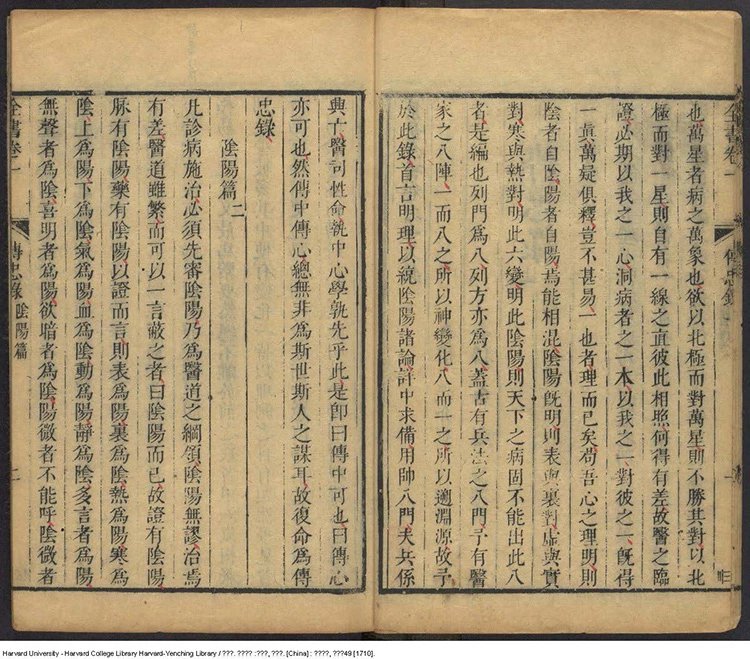 全書卷一
傳忠錄
也萬星者病之萬象也欲以北極而對萬星則不勝其對以北
極而對一星則自有一線之直彼此相照何得有差故醫之臨
證必期以我之一心洞病者之一本以我之一對彼之一旣得
一眞萬疑俱釋豈不甚易一也者理而已矣苟吾心之理明則
陰者自陰陽者自陽焉能相混陰陽旣明則表與裏對虛與實
對寒與熱對明此六變明此陰陽則天下之病固不能出此八
者是編也列門爲八列方亦爲八蓋古有兵法之八門予有醫
家之八陣一而八之所以神變化八而一之所以遡淵源故予
於此錄首言明理以統陰陽諸論詳中求備用帥八門夫兵係
興亡醫司性命執中心學孰先乎此是卽曰傳中可也曰傳心
亦可也然傳中傳心總無非爲斯世斯人之謀耳故復命爲傳
忠錄
陰陽篇二
凡診病施治必須先審陰陽乃爲醫道之綱領陰陽無謬治焉
有差醫道雖繁而可以一言蔽之者曰陰陽而已故證有陰陽
脉有陰陽藥有陰陽以證而言則表爲陽裏爲陰熱爲陽寒爲
陰上爲陽下爲陰氣爲陽血爲陰動爲陽靜爲陰多言者爲陽
無聲者爲陰喜明者爲陽欲暗者爲陰陽微者不能呼陰微者
全書卷一
傳忠錄 陰陽篇
二
Harvard University - Harvard College Library Harvard-Yenching Library / ???. ???? :???, ???. [China] : ????, ???49 [1710].